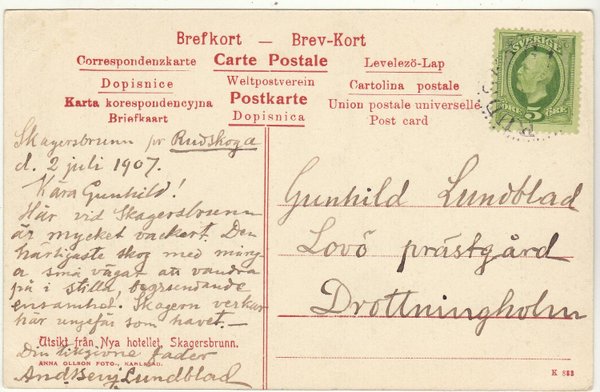 Brefkort — Brev-Kort
Correspondenzkarte Carte Postale Levelezö-Lap
Dopisnice Weltpostverein Cartolina postale
Karta korespondencyjna Postkarte Union postale universelle
Briefkaart Dopisnica Post card
SVERIGE
5
ÖRE ÖRE
Skagersbrunn pr Rudskoga
d. 2 juli 1907.
Kära Gunhild!
Här vid Skagersbrunn
är mycket vackert. Den
härligaste skog med mång-
a små vägar att vandra
på i stilla, begrundande
ensamhet. Skagern verkar
här ungefär som havet. —
Utsikt från Nya hotellet, Skagersbrunn.
Din tillgivne fader
ANNA OLLSON FOTO., KARLSTAD.
And. Benj. Lundblad
Gunhild Lundblad
Lovö prästgård
Drottningholm
K 883